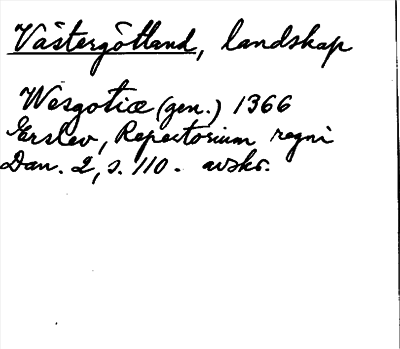 Västergötland, landskap
Wesgotiæ (gen.) 1366
Erslev, Repertorium regni
Dan. 2, s. 110. avskr.